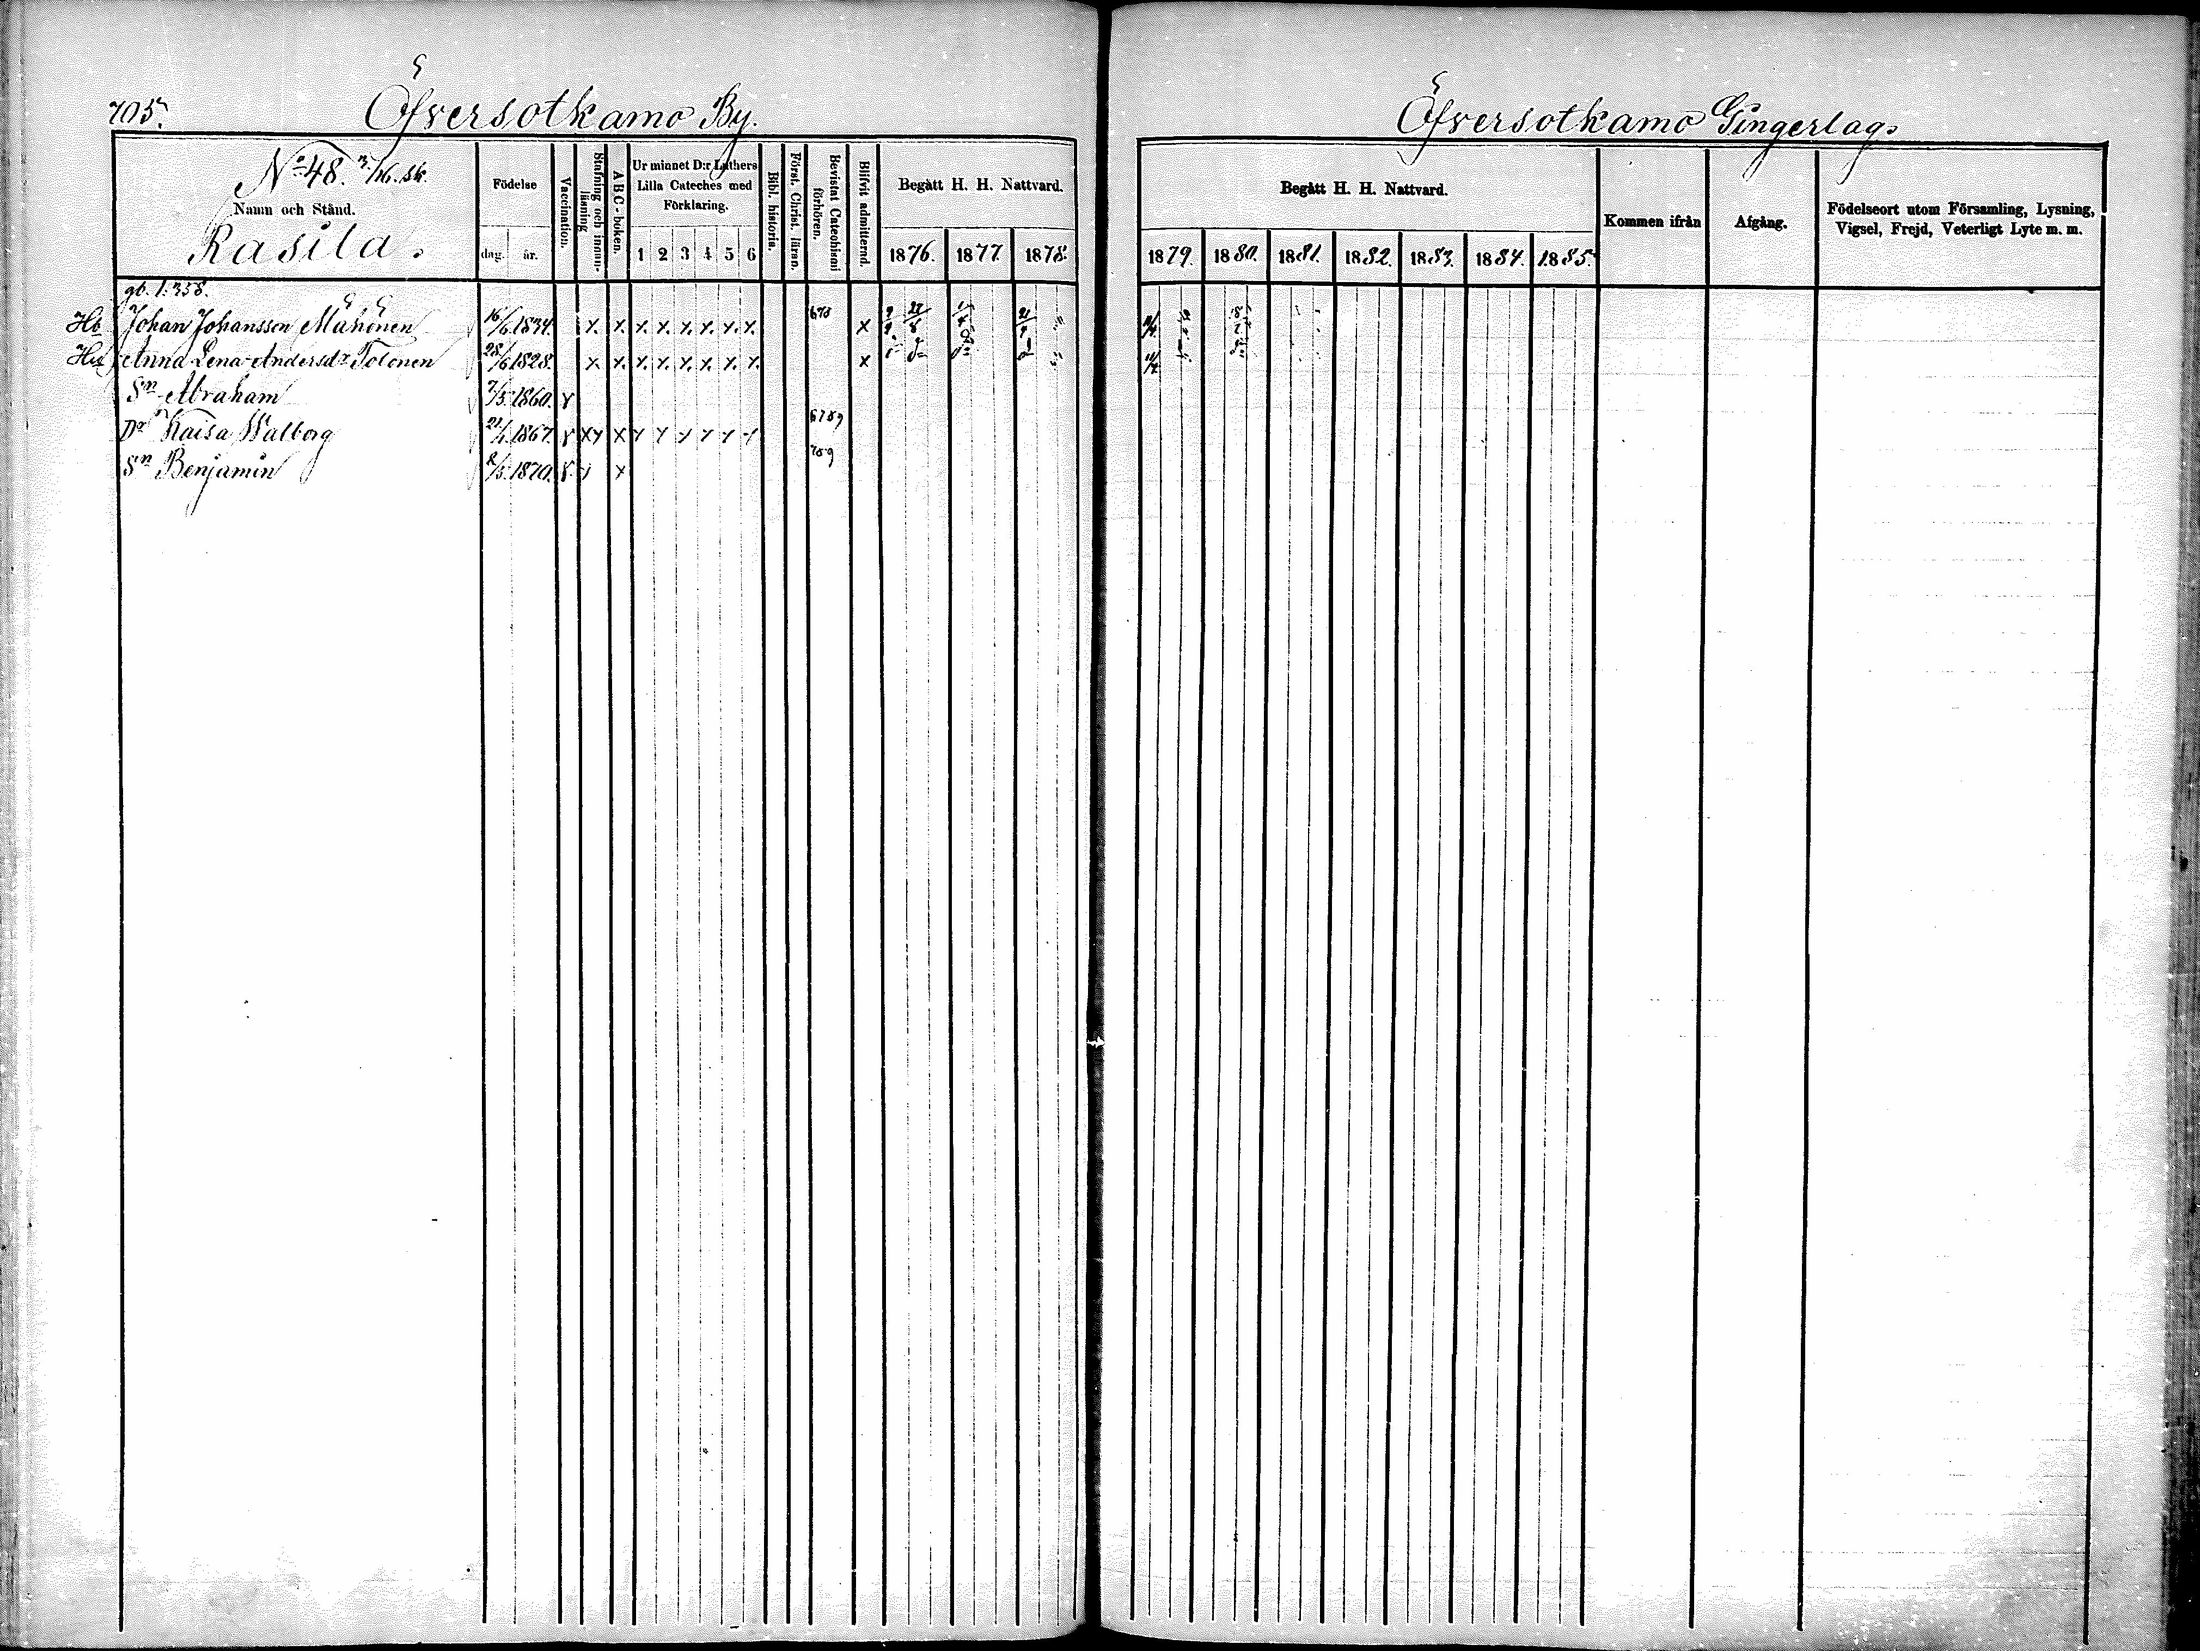 705.
Öfversotkamo By.
No 48. 3/16. sk.
Namn och Stånd.
Rasila.
Födelse
dag. år.
Vaccination.
Stafning och innanläsning
A B C-boken.
Ur minnet D:r Luthers
Lilla Cateches med
Förklaring.
1 2 3 4 5 6
Bibl. historia.
Först. Christ. läran.
Bevistat Catechismi förhören.
Blifvit admitterad.
Begått H. H. Nattvard.
1876. 1877. 1878.
gb. 1. 358.
Hb Johan Johansson Mähönen 16/6 1834. x x x x x x x x 678 x
Hu Anna Lena Andersdr Tolonen 28/6 1828. x x x x x x x x x
Sn Abraham 7/5 1860. x
Dr Kaisa Walborg 21/1 1867. x x x x x x x x x x 6789
Sn Benjamin 8/5 1870. x x x 789
Öfversotkamo Gingerlag.
Begått H. H. Nattvard.
1879. 1880. 1881. 1882. 1883. 1884. 1885.
Kommen ifrån
Afgång.
Födelseort utom Församling, Lysning,
Vigsel, Frejd, Veterligt Lyte m. m.